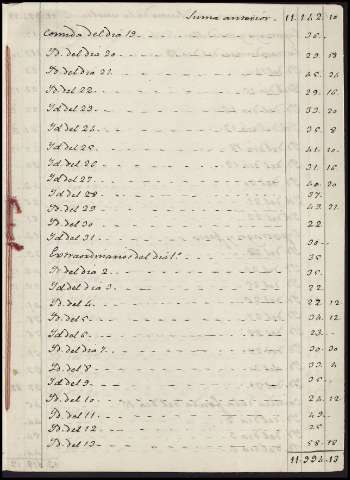 Suma anterior - 11.142. 10
Comida del dia 19 - 36..
Yd. del dia 20 - 29. 18
Yd. del dia 21 - 45. 26
Yd. del 22 - 29. 16
Yd. del 23 - 33. 20
Yd. del 24 - 36. 8
Yd. del 25 - 41. 10
Yd. del 26 - 31. 16
Yd. del 27 - 40. 20
Yd. del 28 - 37.
Yd. del 29 - 43. 21
Yd. del 30 - 22
Yd. del 31 - 30..
Extraordinarios del dia 1º - 35
Yd. del dia 2 - 35.
Yd. del dia 3 - 22
Yd. del 4 - 22. 12
Yd. del 5 - 34. 12
Yd. del 6 - 23..
Yd. del dia 7 - 30. 30
Yd. del 8 - 33. 4
Yd. del 9 - 35..
Yd. del 10 - 24. 12
Yd. del 11 - 49..
Yd. del 12 - 25
Yd. del 13 - 58. 18
11.994. 13